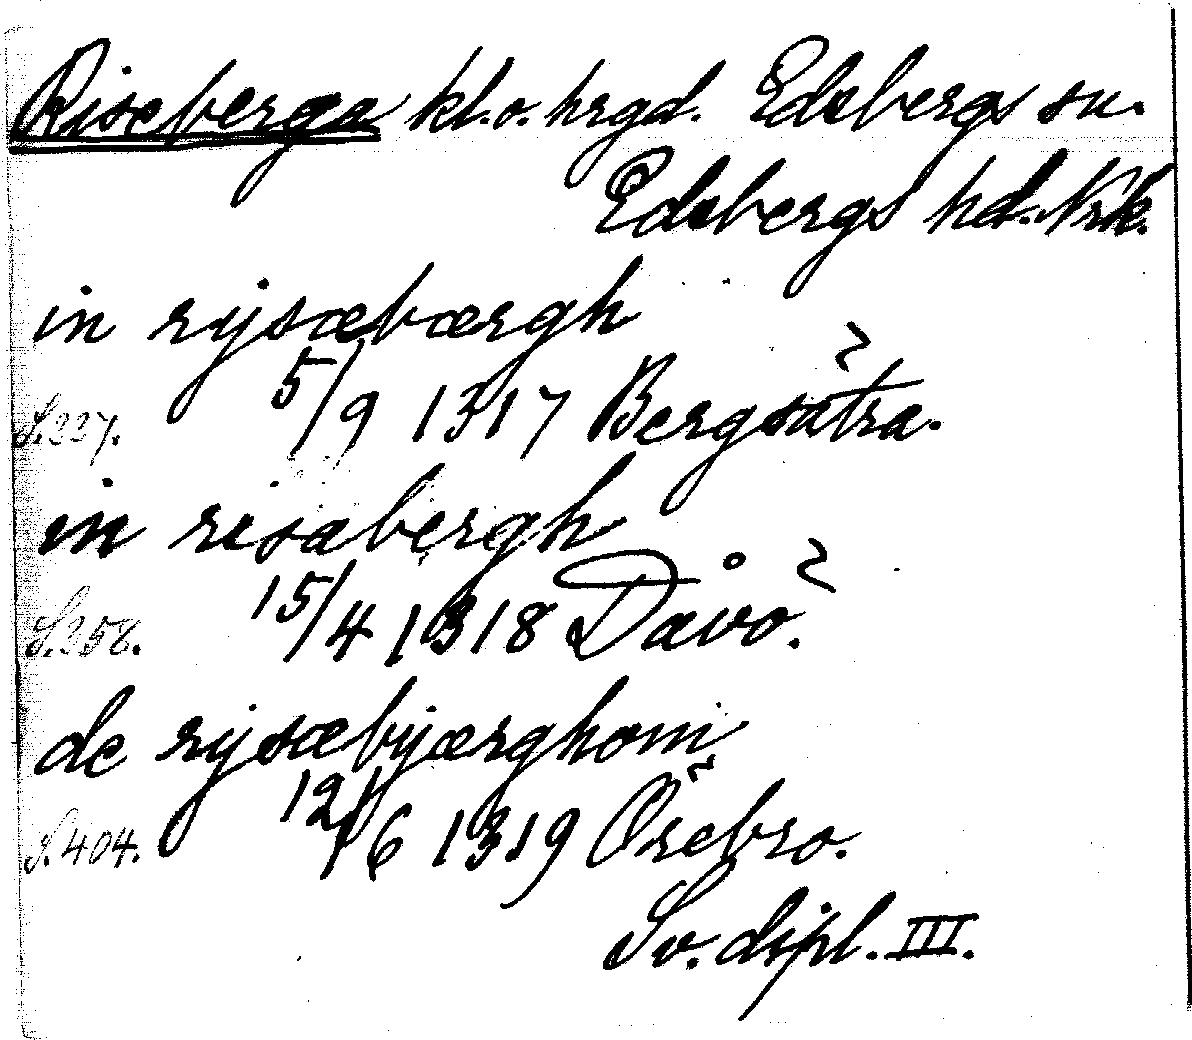 Riseberga kl. o. hrgd. Edsbergs sn.
Edsbergs hd. Nrk.
in rijsæbærgh
S. 227. 5/9 1317 Bergsätra.
in risabergh
S. 258. 15/4 1318 Dåvö.
de rijsæbyærghom
S. 404. 12/6 1319 Örebro.
Sv. dipl. III.